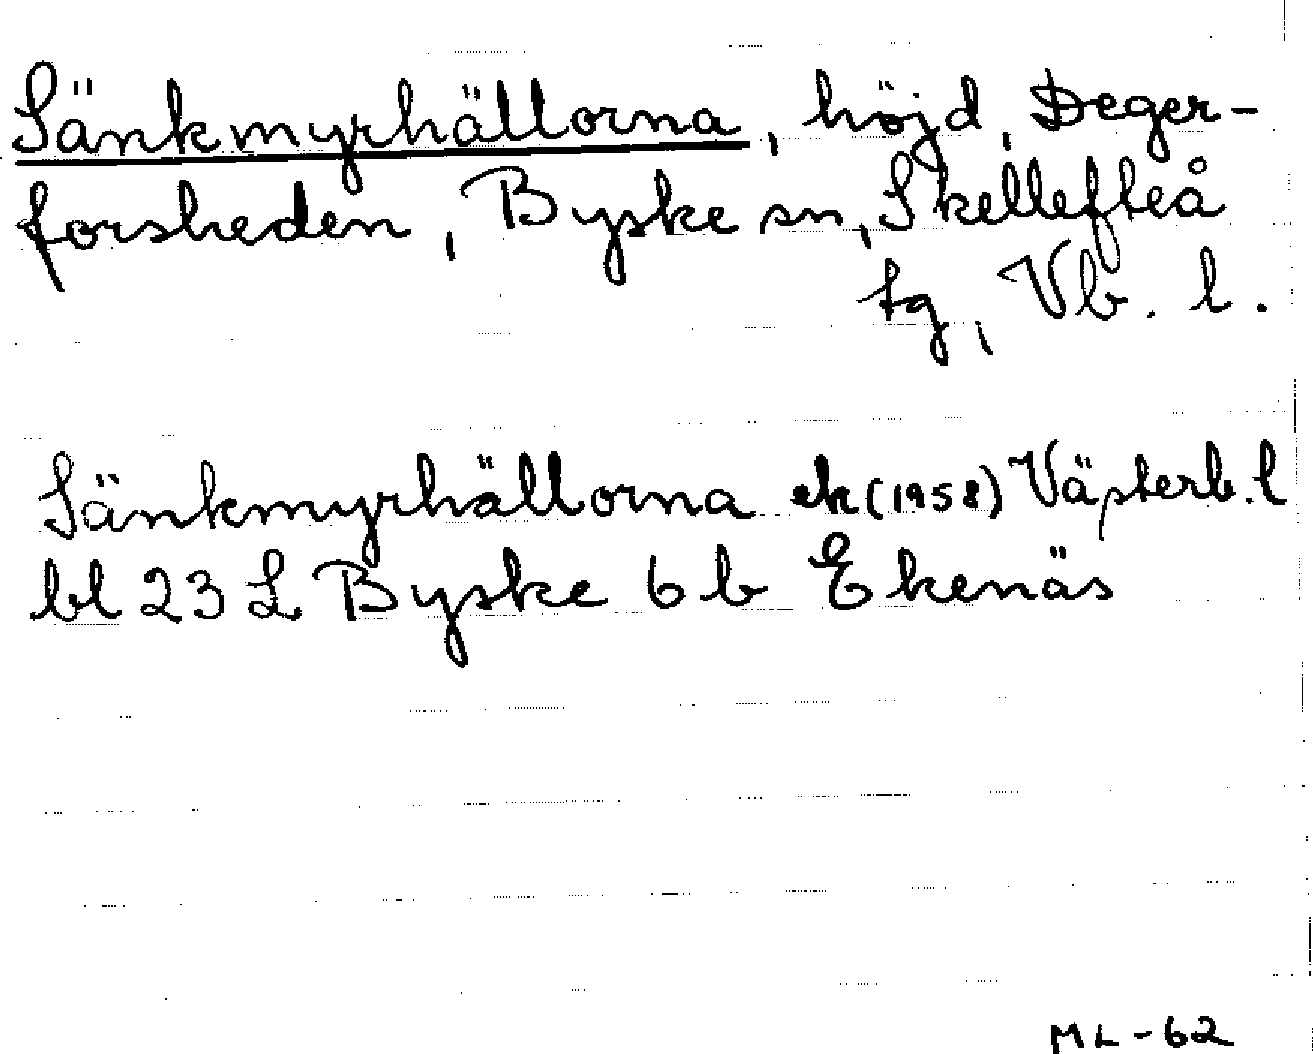 Sänkmyrhällorna, höjd, Deger-
forsheden, Byske sn, Skellefteå
tg, Vb. l.
Sänkmyrhällorna ek (1958) Västerb. l
bl 23 L Byske 6 b Ekenäs
ML-62